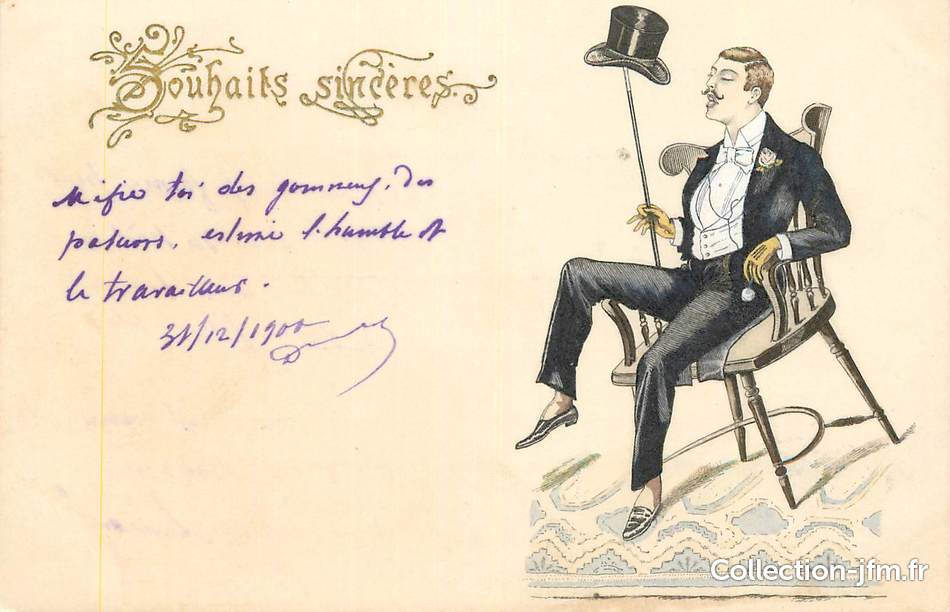 Souhaits sincères.
Méfie toi des gommeux, des
poseurs, estime l'humble et
le travailleur.
31/12/1900
Collection-jfm.fr